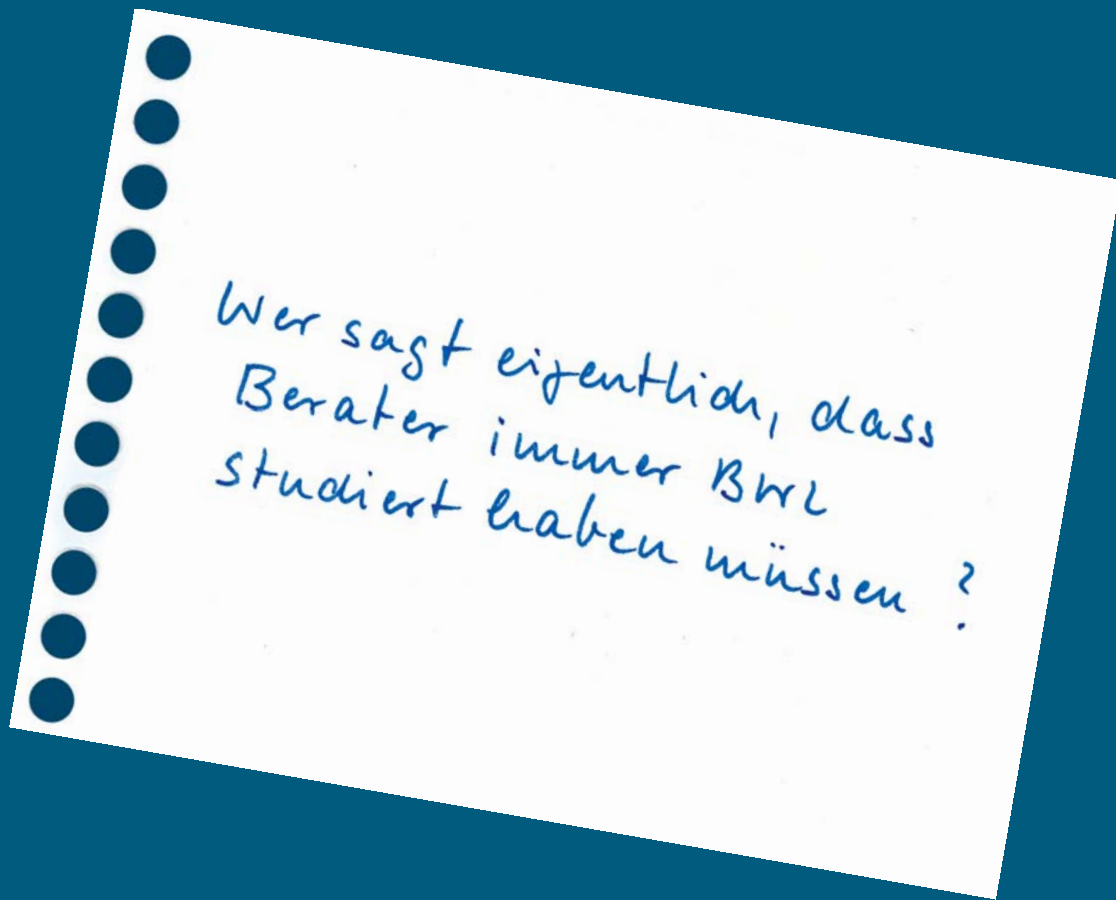 Wer sagt eigentlich, dass
Berater immer BWL
studiert haben müssen ?